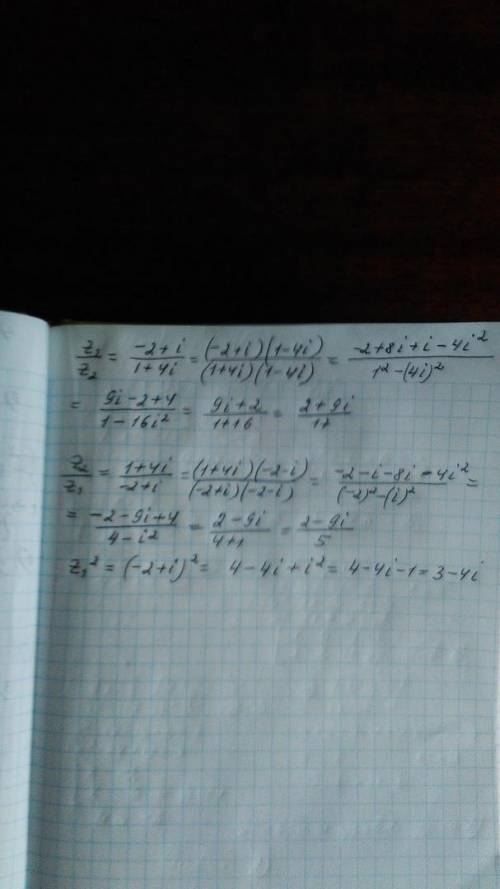 z₁/z₂ = (-2+i)/(1+4i) = ((-2+i)(1-4i))/((1+4i)(1-4i)) = (-2+8i+i-4i²)/(1²-(4i)²)
= (9i-2+4)/(1-16i²) = (9i+2)/(1+16) = (2+9i)/17
z₂/z₁ = (1+4i)/(-2+i) = ((1+4i)(-2-i))/((-2+i)(-2-i)) = (-2-i-8i-4i²)/((-2)²-(i)²) =
= (-2-9i+4)/(4-i²) = (2-9i)/(4+1) = (2-9i)/5
z₁² = (-2+i)² = 4-4i+i² = 4-4i-1 = 3-4i